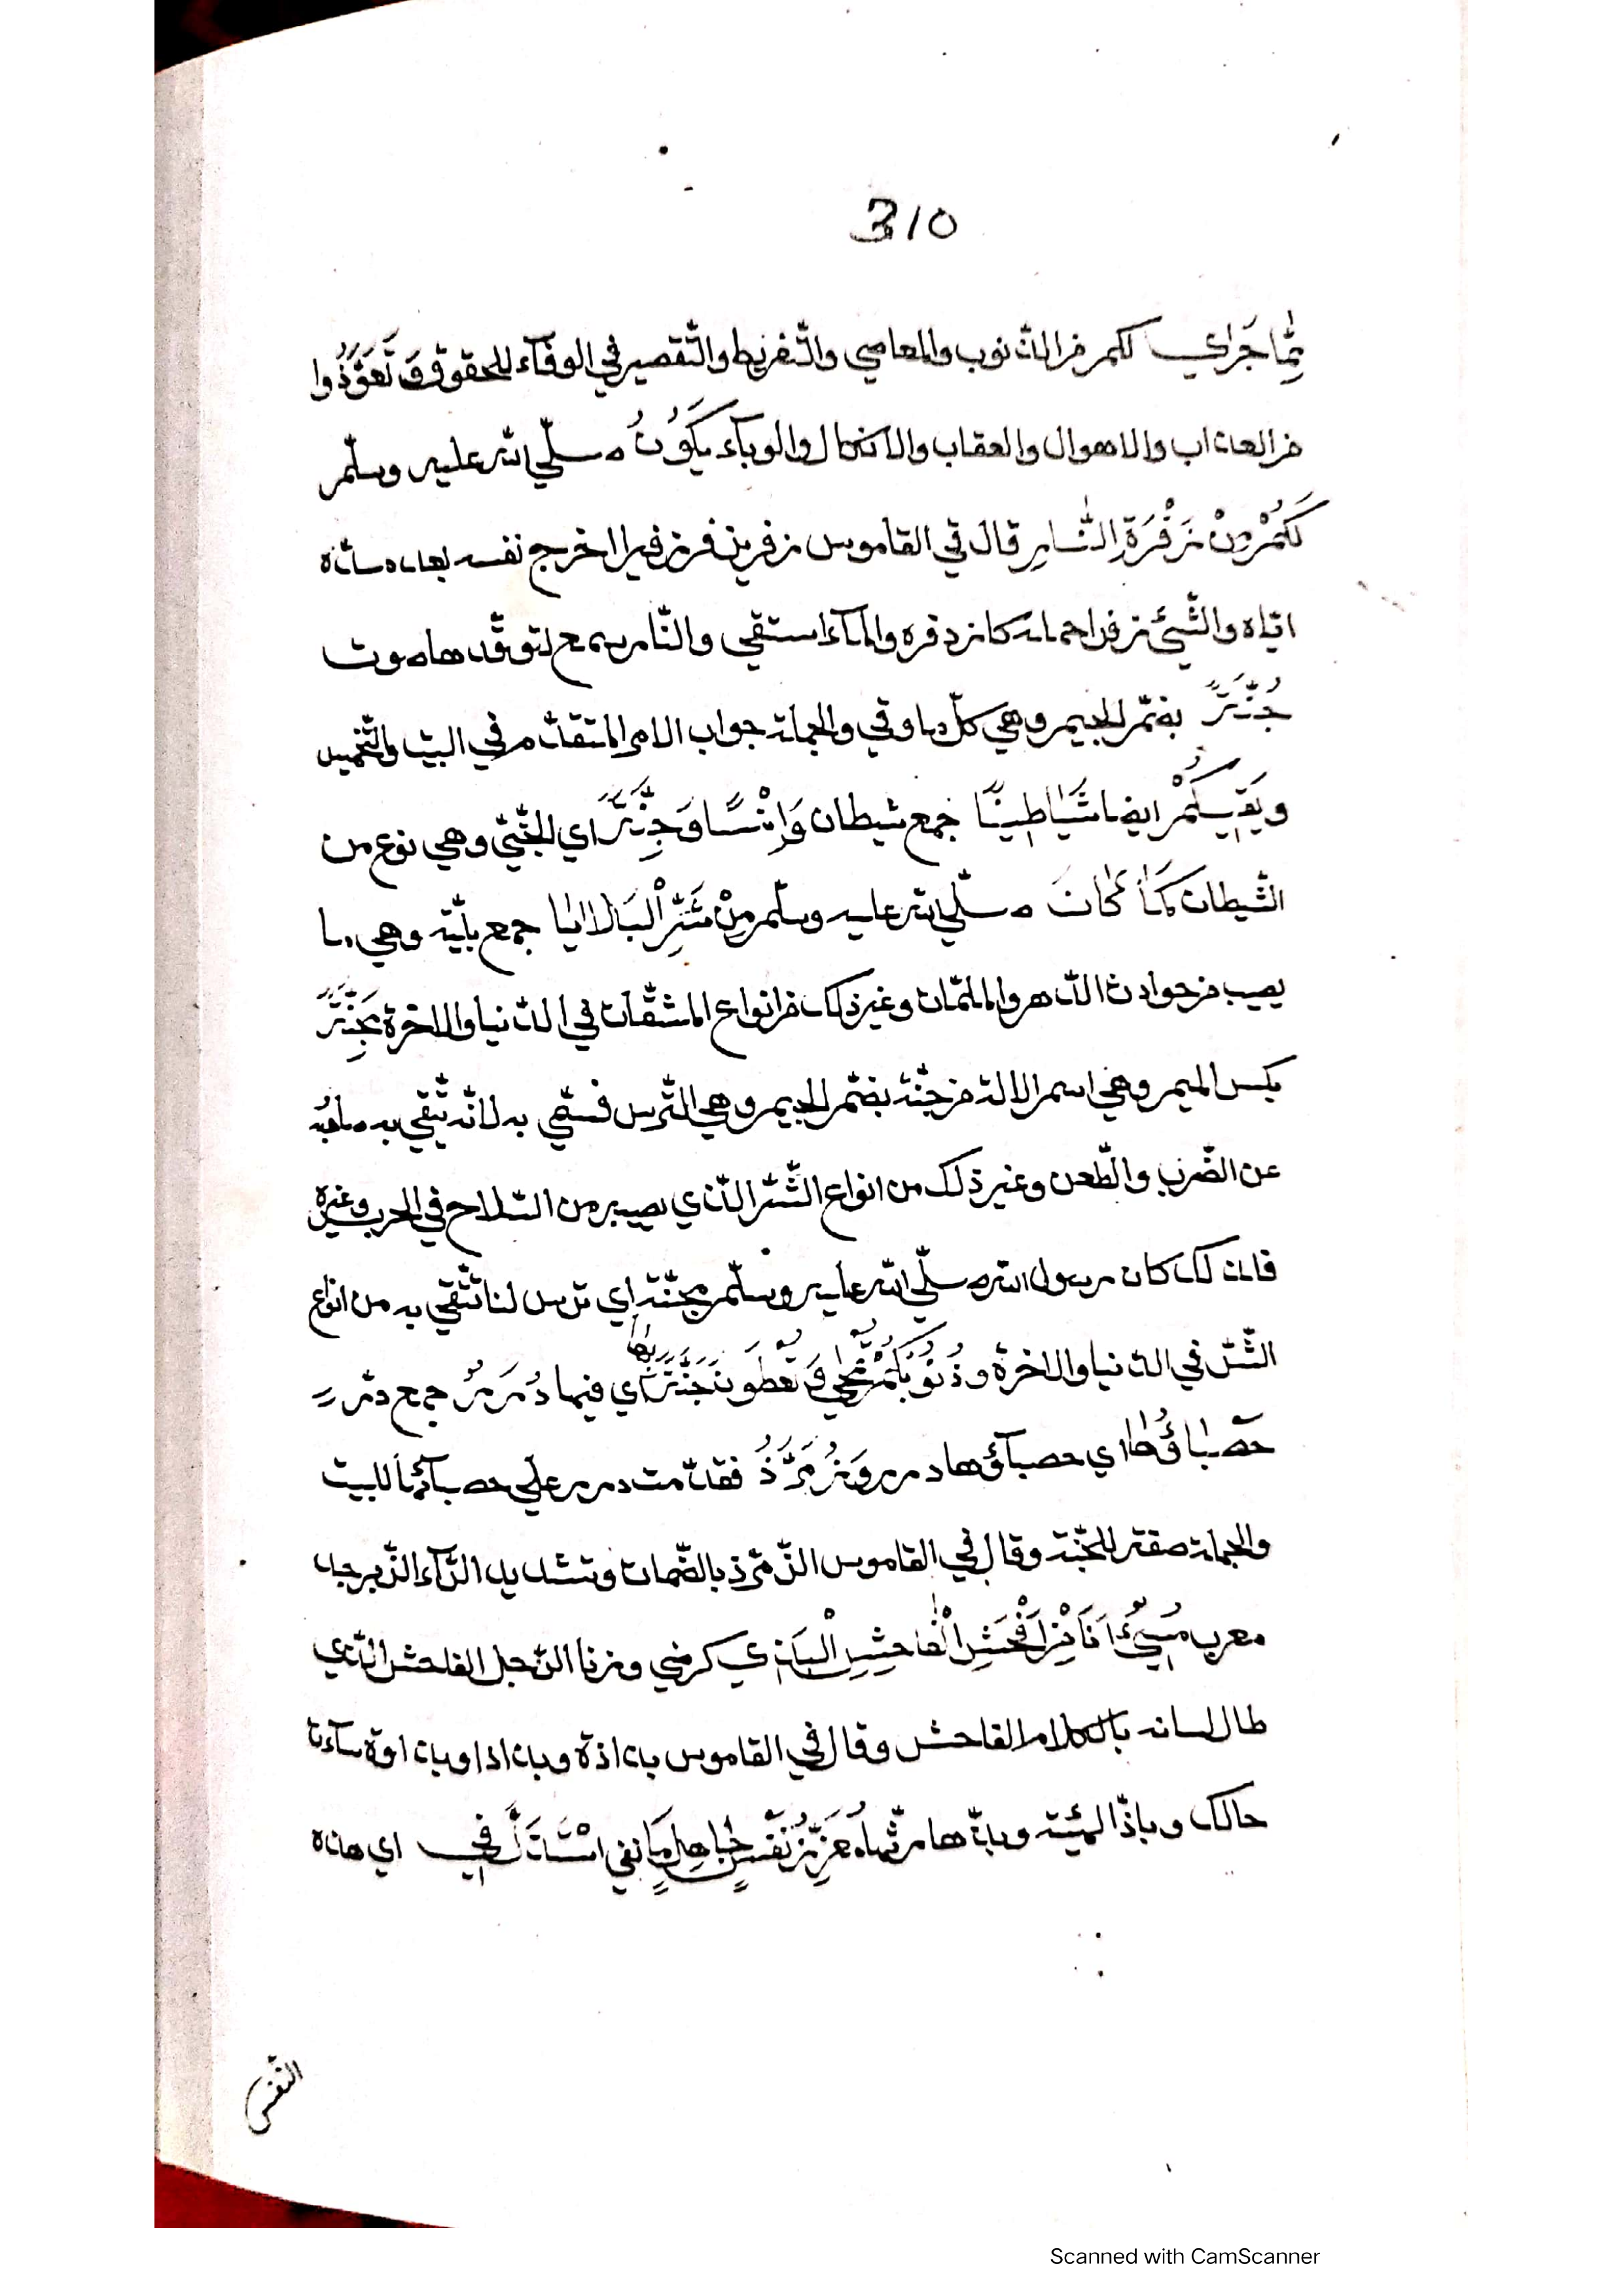 310
مِمَّا جَرَىٰ لكم من الذنوب والمعاصي والتّفريط والتّقصير في الوفآء للحقوق وَتَعَوَّذُوا
من العذاب والاهوال والعقاب والانكال والوبآء يَكُونُ صلّي الله عليه وسلّم
لَكُمْ مِنْ زَفْرَةِ النَّارِ قال في القاموس زفر يزفر زفيرا اخرج نفسه بعد مدّه
ايّاه والشّيئ زفرا حمله كازدفره والمآء استقي والنّار سمع لتوقّدها صوت
جُنَّةً بضمّ الجيم وهي كلّ ما وقي والجملة جواب الامر المتقدّم في البيت والتّخميس
ويَقِيكُمْ ايضا شَيَاطِينًا جمع شيطان وَإِنْسًا وَجِنَّةً اي الجنّيّ وهي نوع من
الشّيطان كَمَا كَانَ صلّي الله عليه وسلّم مِنْ شَرِّ الْبَلَايَا جمع بليّة وهي ما
يصيب من حوادث الدّهر والملمّات وغير ذلك من انواع المشقّات في الدّنيا والاخرة مِجَنَّةً
بكسر الميم وهي اسم الالة من جنّة بضمّ الجيم وهي التّرس فسمّي به لانّه يتّقي به صاحبه
عن الضّرب والطّعن وغير ذلك من انواع الشّرّ الذّي يصيبه من السّلاح في الحرب وغيره
فلذلك كان رسول الله صلّي الله عليه وسلّم مجنّة اي ترس لنا نتّقي به من انواع
الشّرّ في الدّنيا والاخرة وَذُنُوبُكُمْ تُمْحَي وَتُعْطَوْنَ جَنَّةً بِهَا اي فيها دُرَرٌ جمع درّة
حَصْبَاؤُهَا اي حصبآؤها درر وَزُمُرُّذُ فقدّمت درر علي حصبآؤها للبيت
والجملة صفة للجنّة وقال في القاموس الزّمرّذ بالضّمات وتشديد الرّآء الزّبرجد
معرب مُسِيئٌ أَنَا مِنْ أَفْحَشِ الْفَاحِشِ الْبَذِي كرضي وزنا الرّجل الفاحش الذّي
طال لسانه بالكلام الفاحش وقال في القاموس بذاذة وبذاذا وبذاوة سآءت
حالك وباذّ الهيئة وبذّها رثّها عَزِيزُ نَفْسٍ جَاهِلِيٍّ اي هذه
النّفس
Scanned with CamScanner